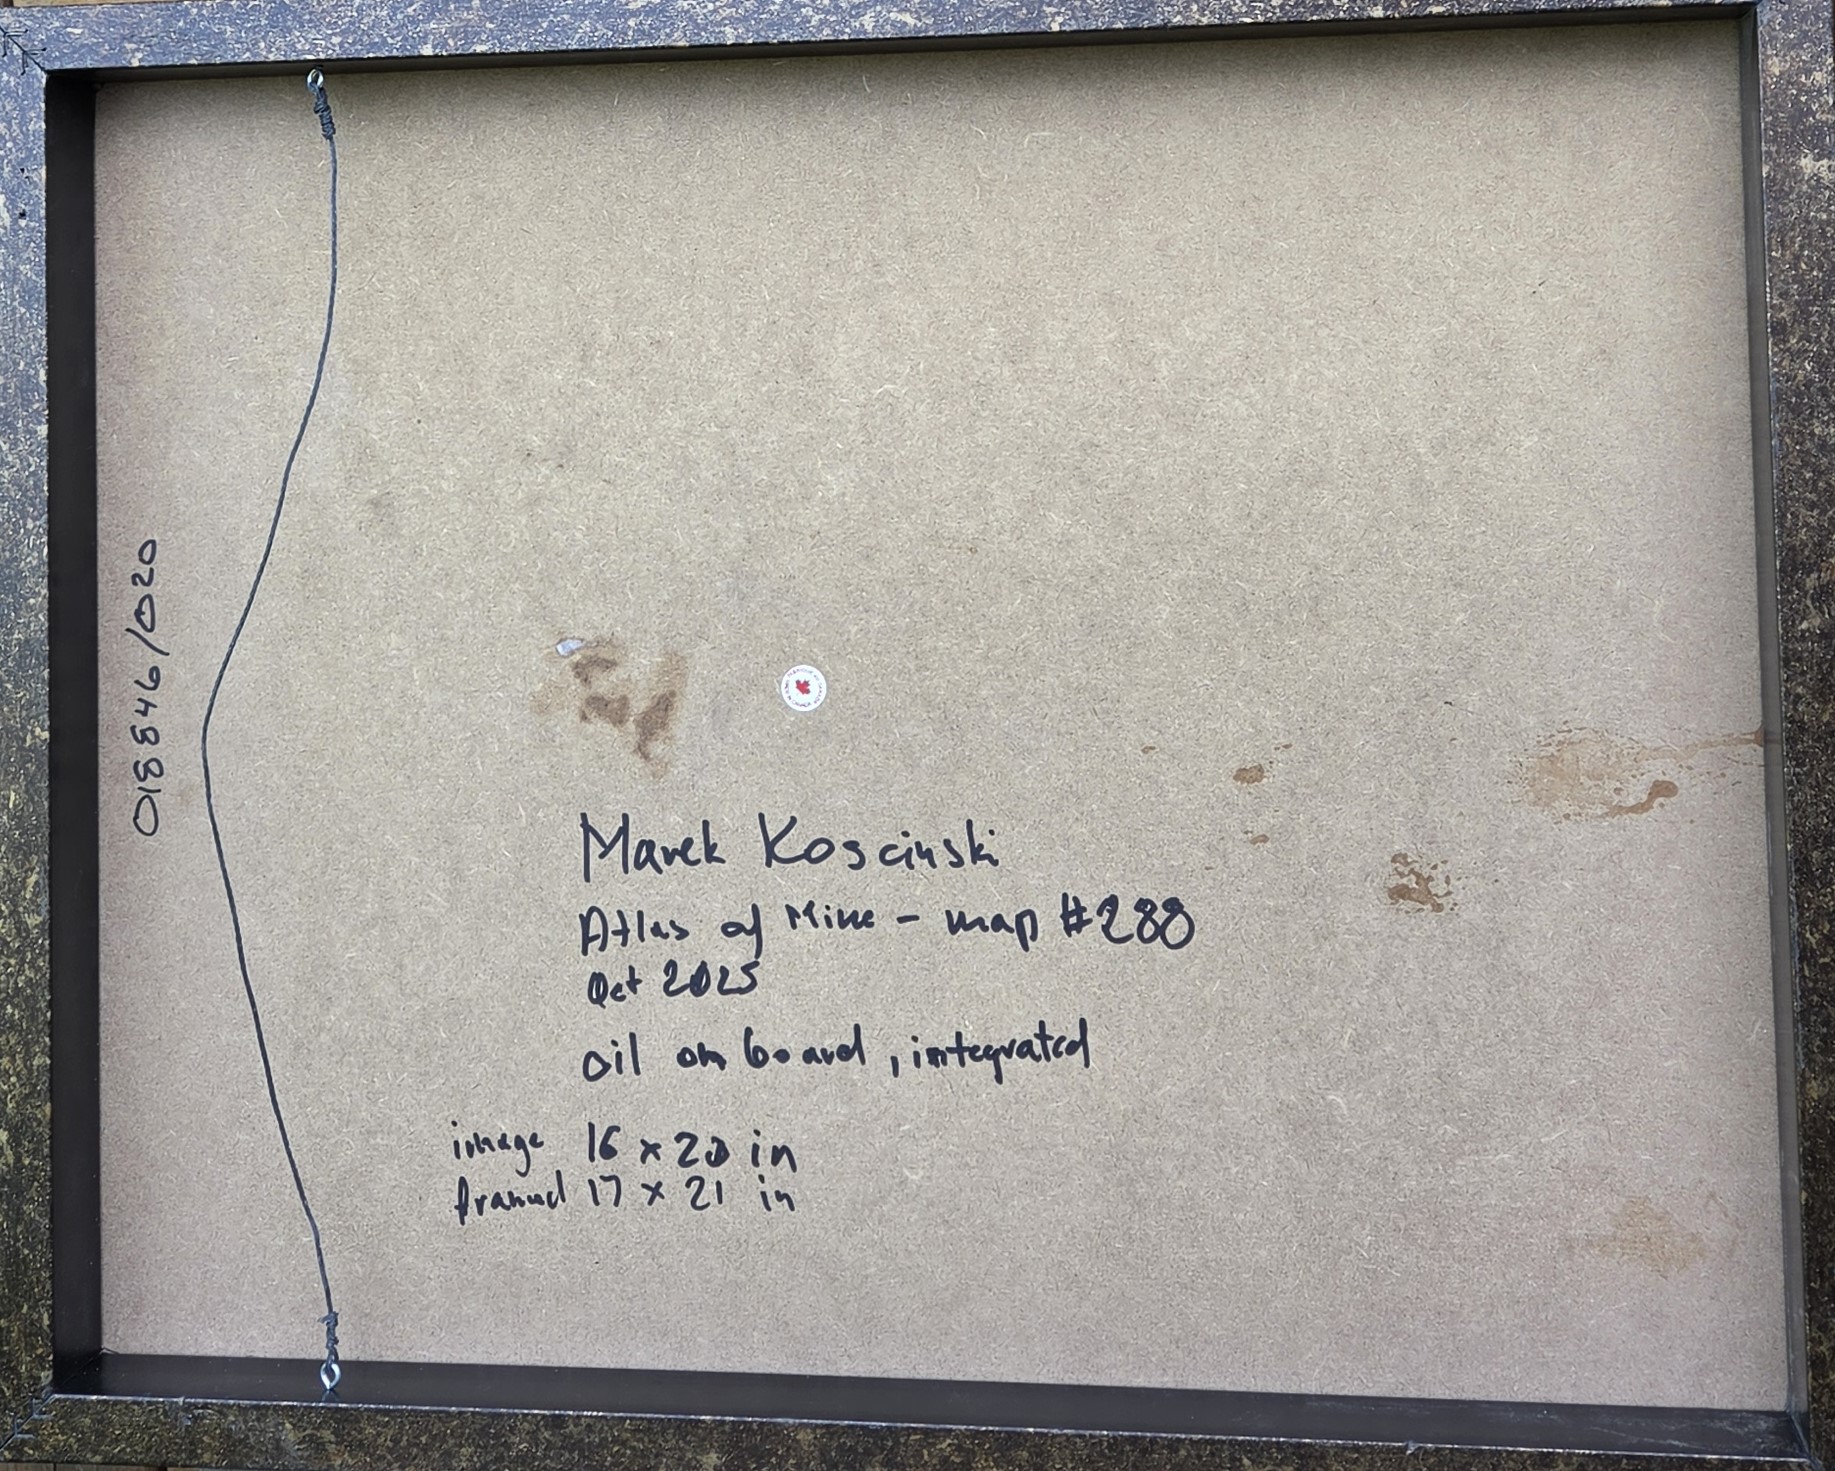 018846/020
Marek Koscinski
Atlas of Mine - map #288
Oct 2025
oil on board, integrated
image 16 x 20 in
framed 17 x 21 in